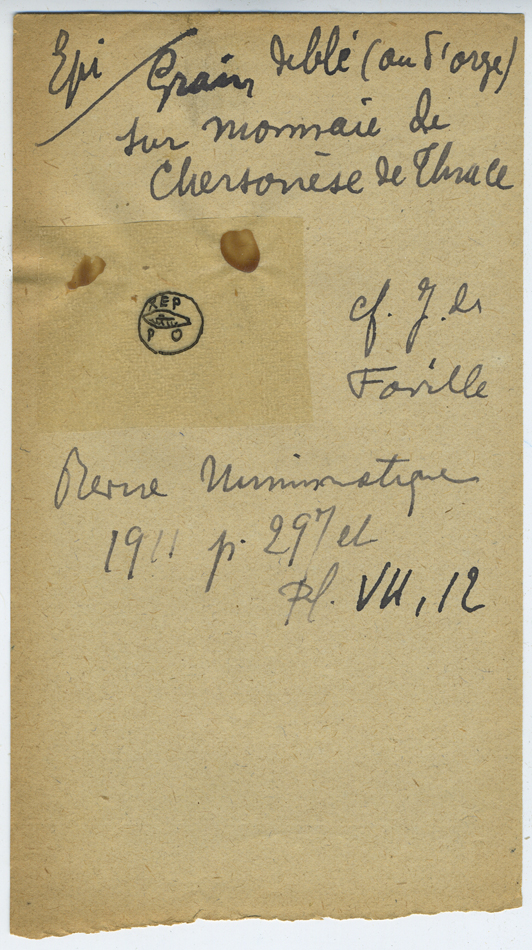 Epi / Grain de blé (ou d'orge)
sur monnaie de
Chersonèse de Thrace
ΧΕΡ
Ρ Ο
cf. J. de
Foville
Revue Numismatique
1911 p. 297 et
Pl. VII, 12